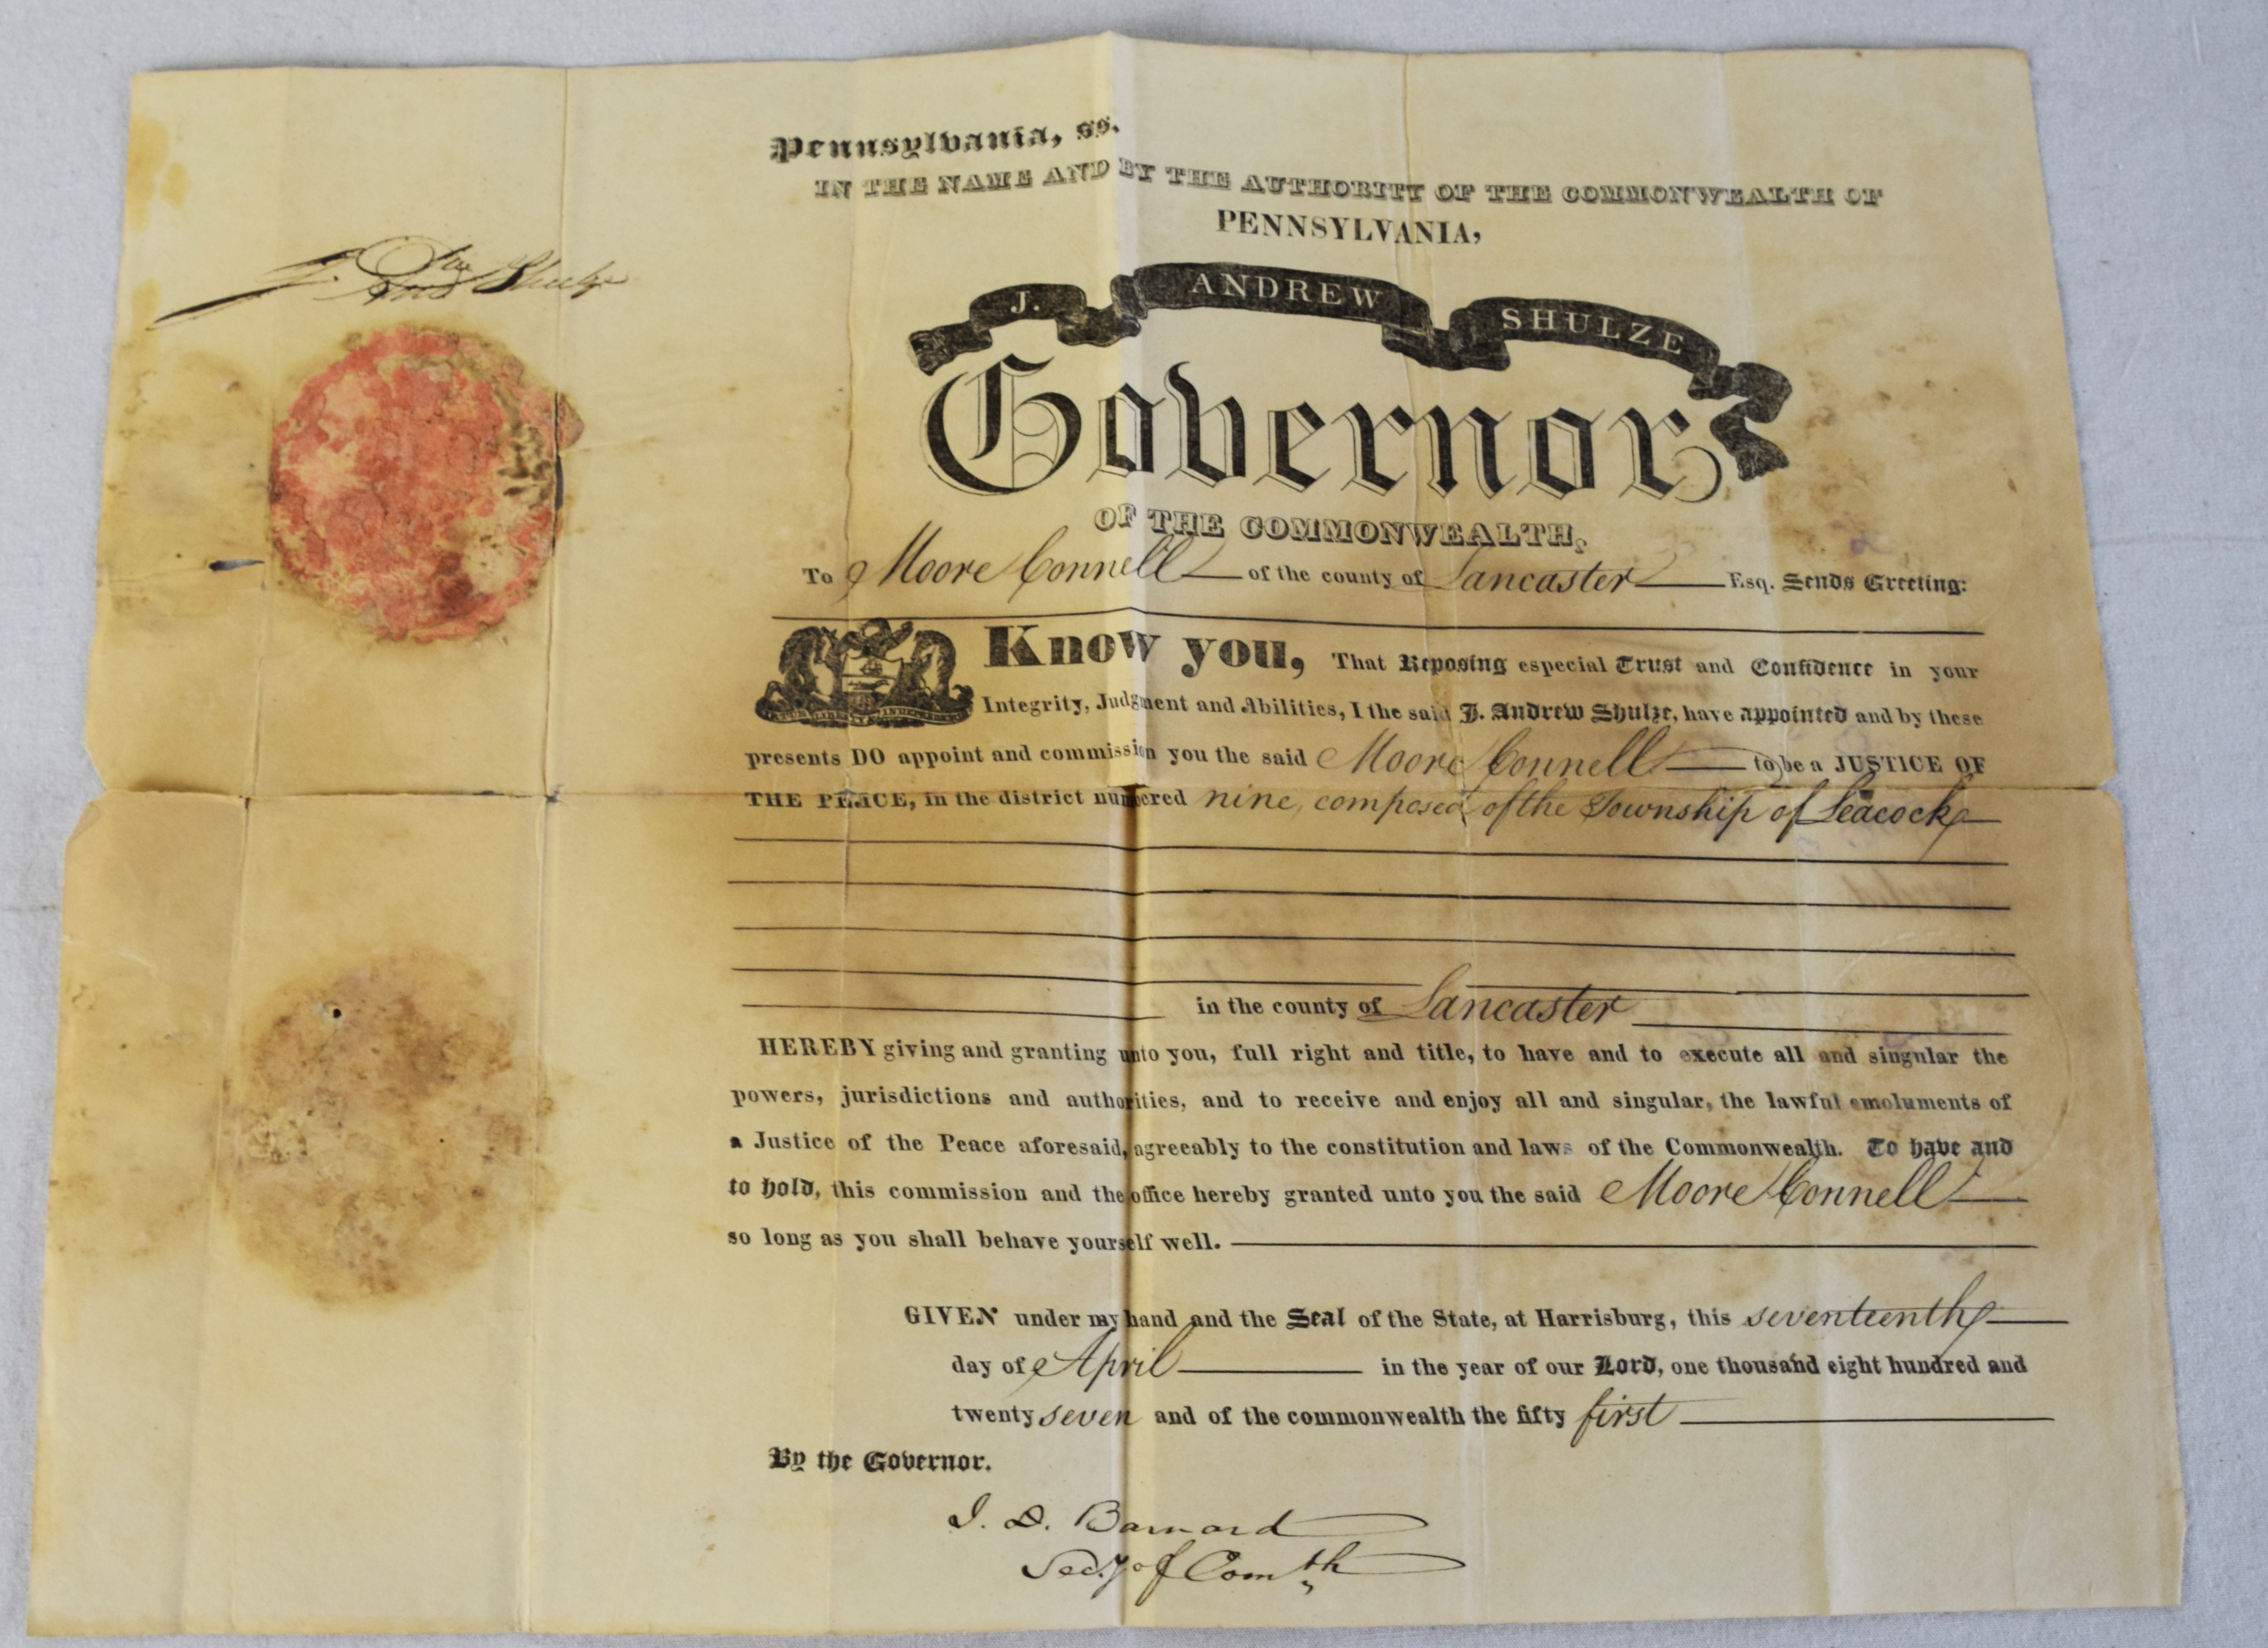 Pennsylvania, ss.
IN THE NAME AND BY THE AUTHORITY OF THE COMMONWEALTH OF
PENNSYLVANIA,
J. Andw Shulze
J. ANDREW SHULZE
Governor
OF THE COMMONWEALTH,
To Moore Connell of the county of Lancaster Esq. Sends Greeting:
Know you, That Reposing especial Trust and Confidence in your
Integrity, Judgment and Abilities, I the said J. Andrew Shulze, have appointed and by these
presents DO appoint and commission you the said Moore Connell to be a JUSTICE OF
THE PEACE, in the district numbered nine, composed of the Township of Leacock
in the county of Lancaster
HEREBY giving and granting unto you, full right and title, to have and to execute all and singular the
powers, jurisdictions and authorities, and to receive and enjoy all and singular, the lawful emoluments of
a Justice of the Peace aforesaid, agreeably to the constitution and laws of the Commonwealth. To have and
to hold, this commission and the office hereby granted unto you the said Moore Connell
so long as you shall behave yourself well.
GIVEN under my hand and the Seal of the State, at Harrisburg, this seventeenth
day of April in the year of our Lord, one thousand eight hundred and
twenty seven and of the commonwealth the fifty first
By the Governor.
I. D. Barnard
Secy of Comth